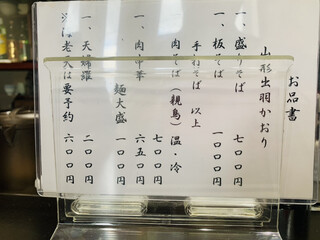 お品書
山形出羽かおり
一、盛りそば 七〇〇円
一、板そば 一〇〇〇円
手打そば 以上
肉そば(親鳥)温・冷 七〇〇円
一、肉中華 六五〇円
麺大盛 一〇〇円
一、天婦羅 二〇〇円
は要予約 六〇〇〇円